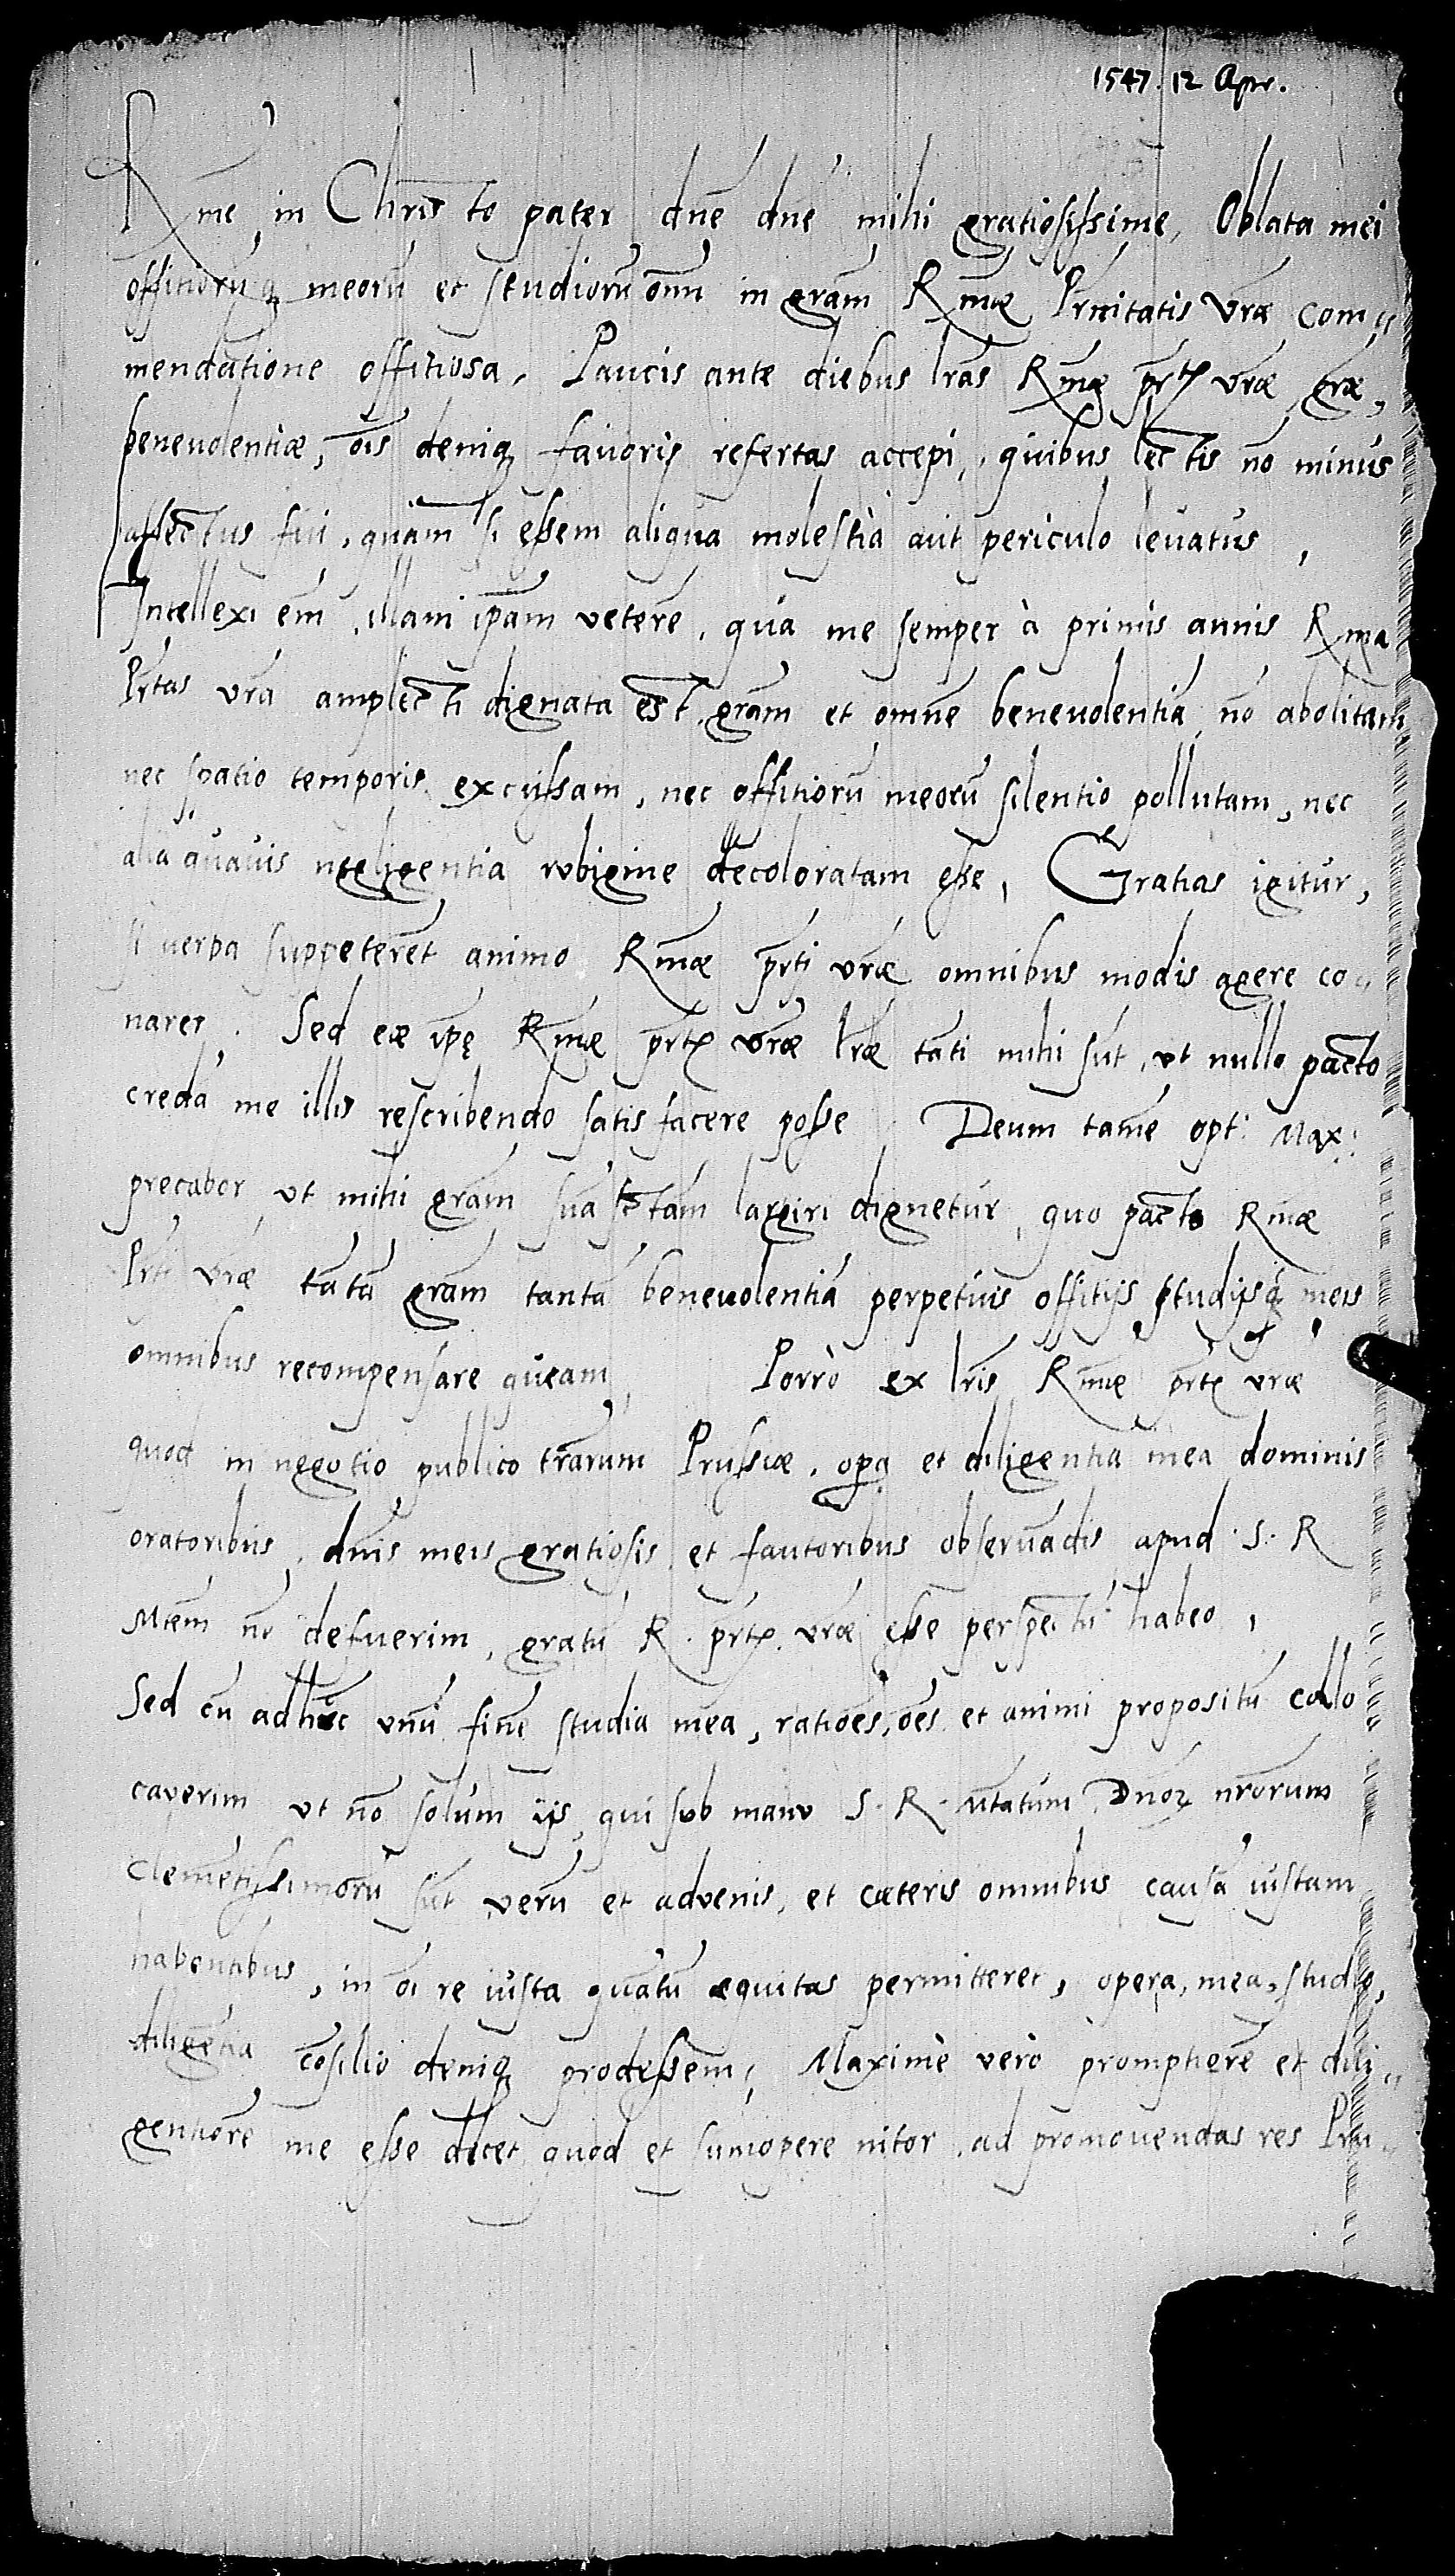 1547. 12 Apr.
Rme in Christo pater dne dne mihi gratiosissime, Oblata mei
offitiorūq meorū et studiorū omn in gram Rmae Prnitatis vrae com„
mendatione offitiosa, Paucis ante diebus lras Rmae prtis vrae grae,
benevolentiae, ois deniq favoris refertas accepi, quibus lectis nō minus
affectus fui, quam si essem aliqua molestia aut periculo levatus,
Intellexi em, illam ipam veterē, qua me semper à primis annis Rma
Prtas vra amplecti dignata est gram et omnē benevolentiā nō abolitam
nec spatio temporis excussam, nec offitiorū meorū silentio pollutam, nec
alia quavis negligentia rubigine decoloratam esse, Gratias igitur,
si verba suppeterēt animo Rmae prti vrae omnibus modis agere co„
narer. Sed eae ipę Rmae prtis vrae lrae tāti mihi sūt, ut nullo pacto
credā me illis rescribendo satisfacere posse Deum tamē opt: Max:
precabor ut mihi gram suā sctam largiri dignetur, quo pacto Rmae
Prti vrae tātā gram tantā benevolentiā perpetuis offitijs studijsq meis
omnibus recompensare queam, Porrò ex lris Rmae prtis vrae
quod in negotio publico trarum Prussiae, opa et diligentia mea dominis
oratoribus, dnis meis gratiosis et fautoribus observādis apud S. R
Mtem nō defuerim, gratū R. prtis vrae esse perspectū habeo,
Sed cū adhuc unū finē studia mea, ratioēs, oēs et animi propositū collo
caverim ut nō solum ijs, qui sub manu S. R. Mtatum Dnoꝝ nrorum
clemētissimorū sūt verū et advenis, et caeteris omnibus causā iustam
habentibus, in oi re iusta quātū aequitas permitteret, opera, mea, studio,
diligētia cōsilio deniq prodessem, Maximè verò promptiorē et dili„
gentiorē me esse decet quod et sumopere nitor, ad promovendas res Pru„